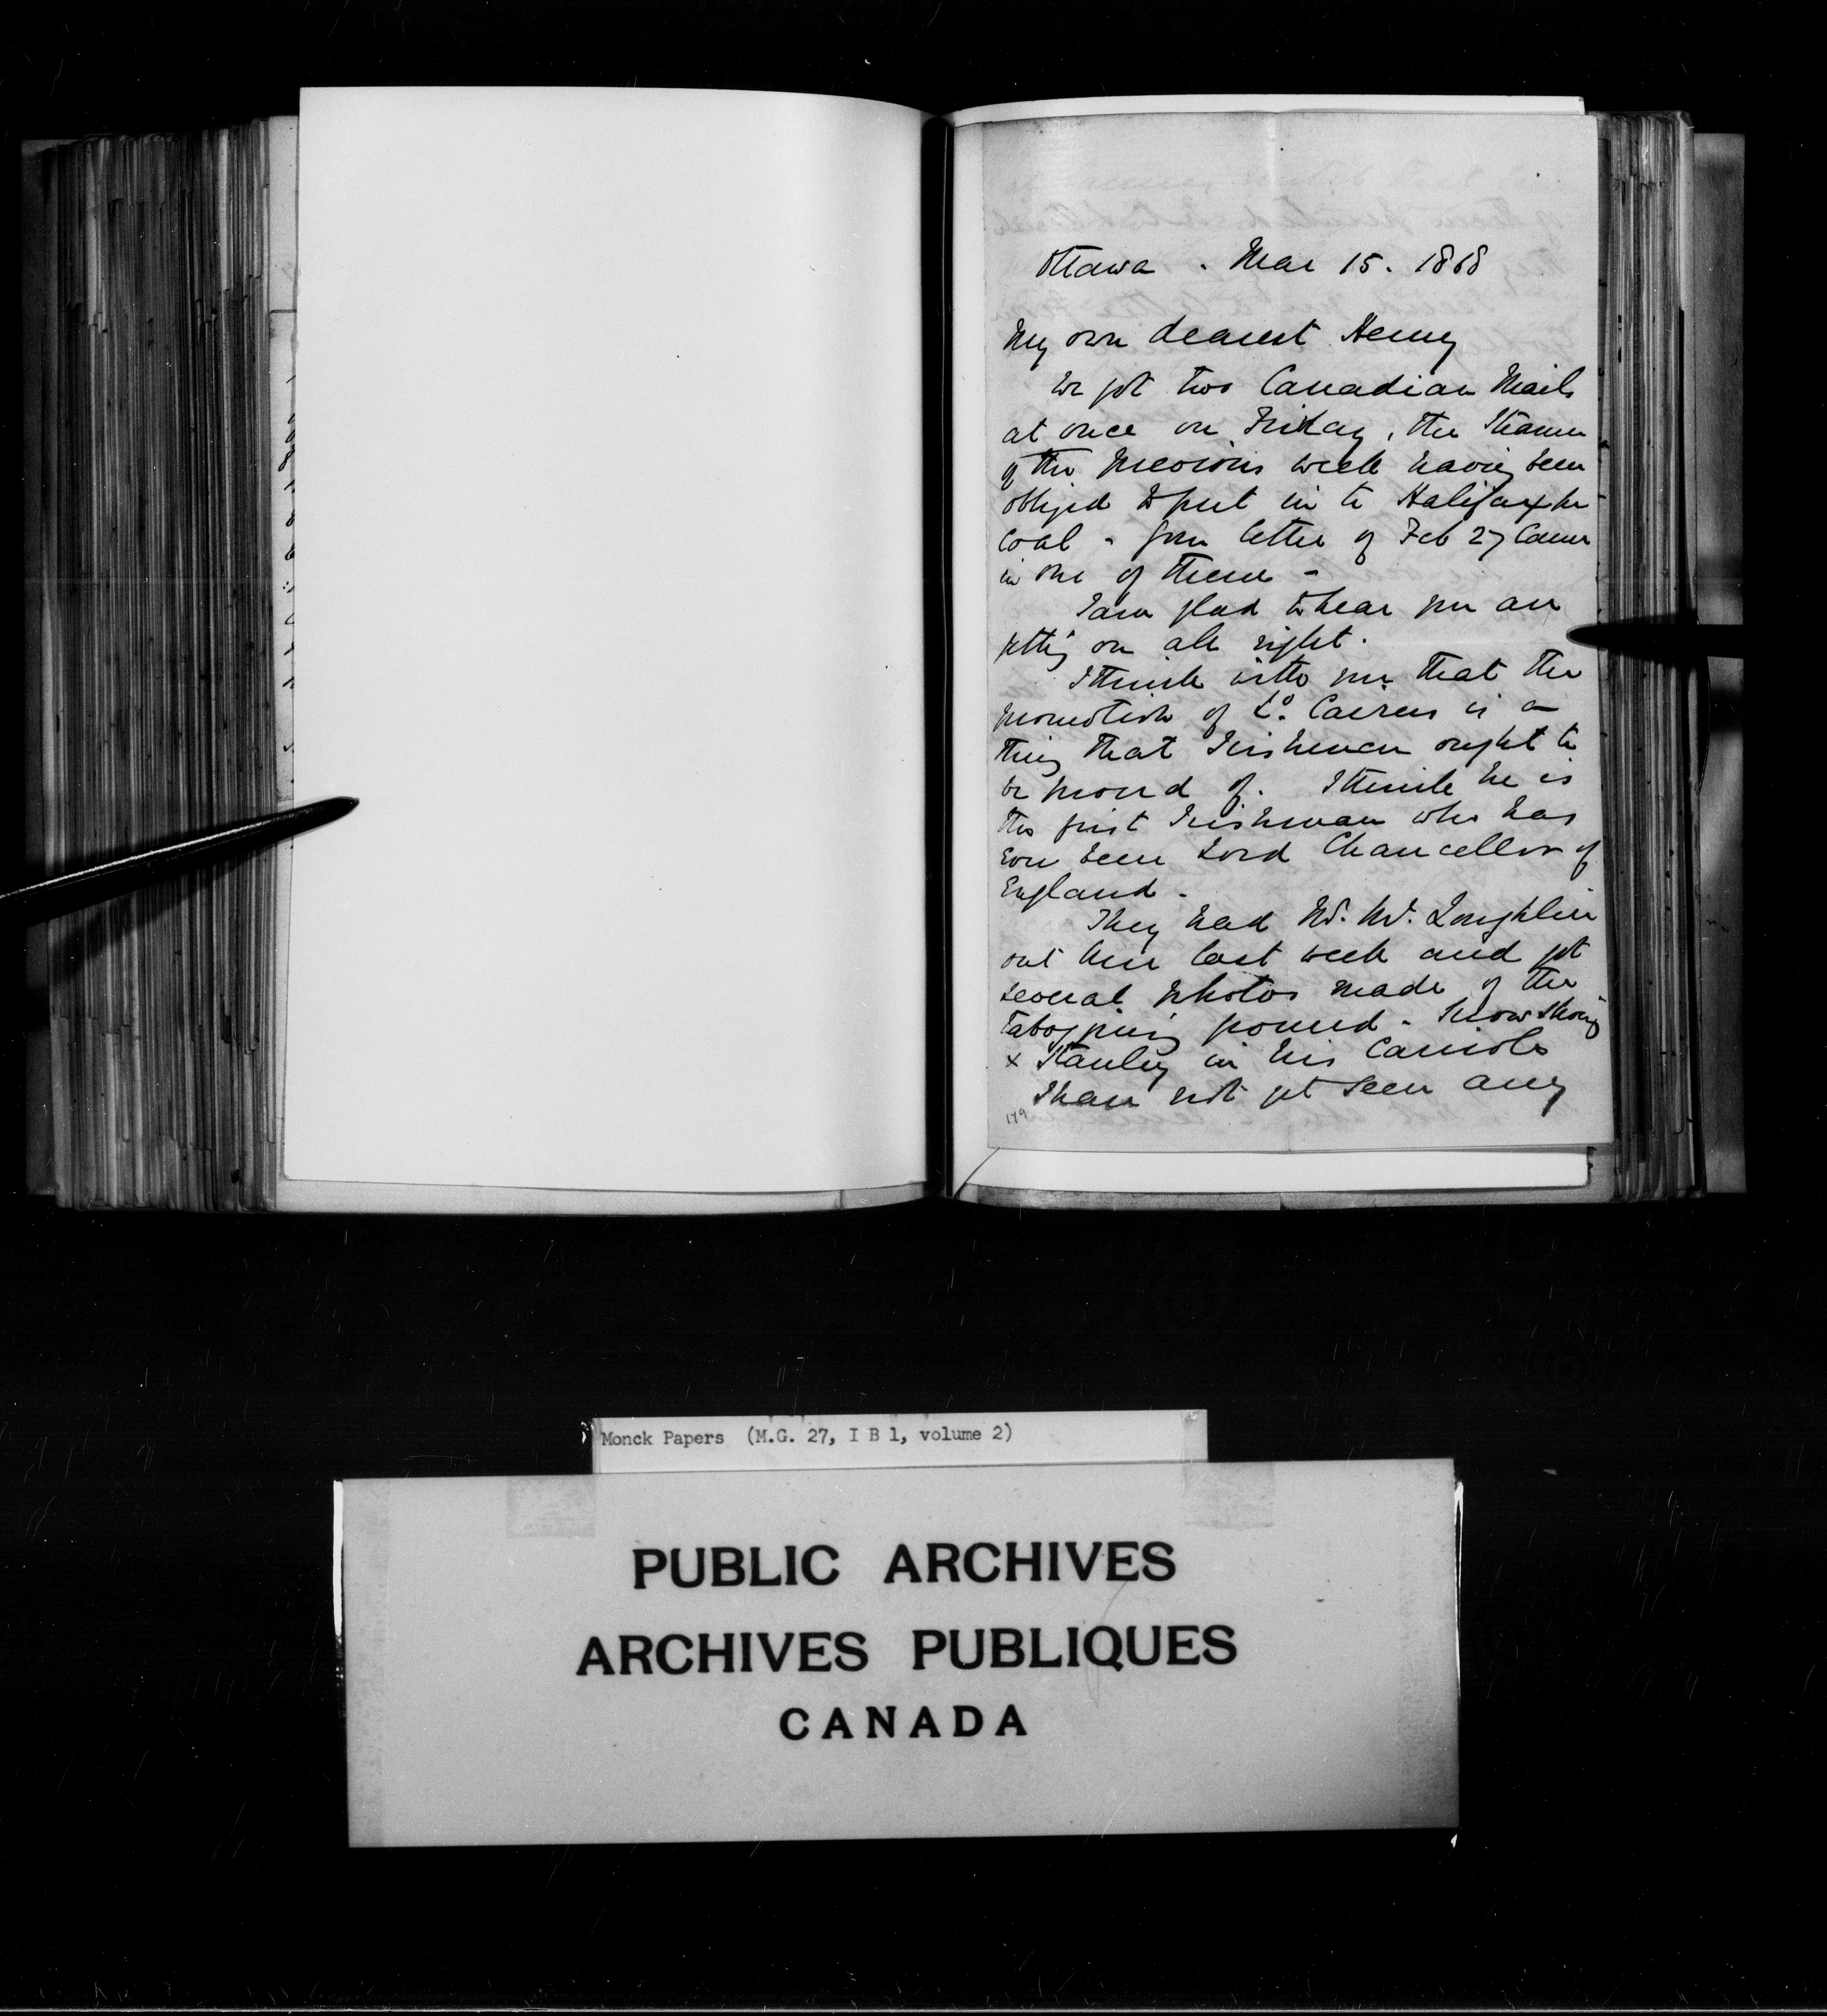 Ottawa . Mar 15. 1868
My own dearest Henry
We got two Canadian Mails
at once on Friday, the Steamer
of the previous week having been
obliged to put in to Halifax for
coal - Your letter of Feb 27 came
in one of them -
I am glad to hear you are
getting on all right.
I think with you that the
promotion of Ld. Cairns is a
thing that Irishmen ought to
be proud of. I think he is
the first Irishman who has
ever been Lord Chancellor of
England -
They had Mr. Mc. Loughlin
out here last week and got
several photos made of the
Taboggning ground - Snow shoeing
& Stanley in his Cariole
I have not yet seen any
179
Monck Papers (M.G. 27, I B 1, volume 2)
PUBLIC ARCHIVES
ARCHIVES PUBLIQUES
CANADA